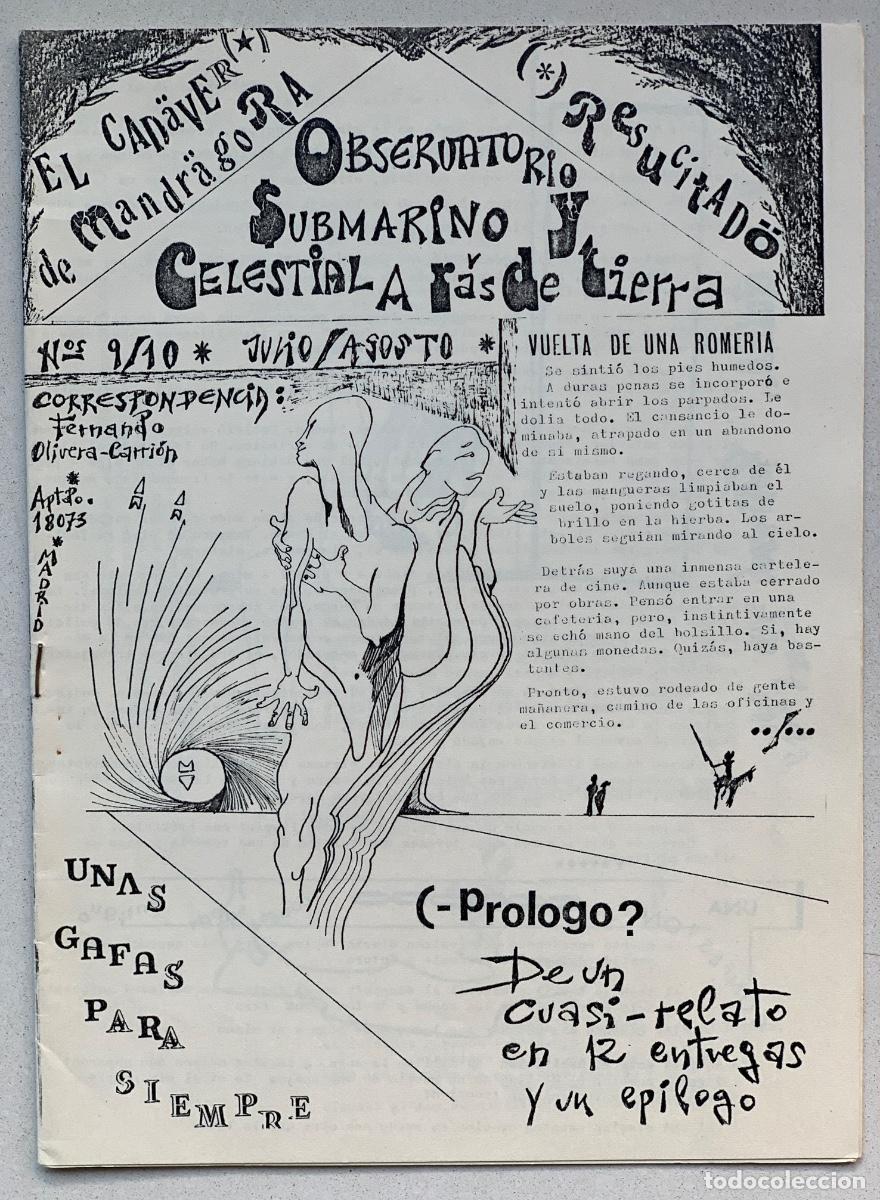 EL CADäVER (*)
de MandrägoRA
(*) ResuCitADö
OBSERVATORIO
SUBMARINO Y
CELESTIAL A rás de tierra
Nos 9/10 * JULIO/AGOSTO *
CORRESPONDENCIA:
Fernando
Olivera-Carrión
*
Aptdo.
18073
*
MADRID
VUELTA DE UNA ROMERIA
Se sintió los pies humedos.
A duras penas se incorporó e
intentó abrir los parpados. Le
dolia todo. El cansancio le do-
minaba, atrapado en un abandono
de si mismo.
Estaban regando, cerca de él
y las mangueras limpiaban el
suelo, poniendo gotitas de
brillo en la hierba. Los ar-
boles seguian mirando al cielo.
Detrás suya una inmensa cartele-
ra de cine. Aunque estaba cerrado
por obras. Pensó entrar en una
cafeteria, pero, instintivamente
se echó mano del bolsillo. Si, hay
algunas monedas. Quizás, haya bas-
tantes.
Pronto, estuvo rodeado de gente
mañanera, camino de las oficinas y
el comercio.
../...
UNAS
GAFAS
PARA
SIEMPRE
(-Prologo?
De un
cuasi-relato
en 12 entregas
y un epílogo
todocoleccion